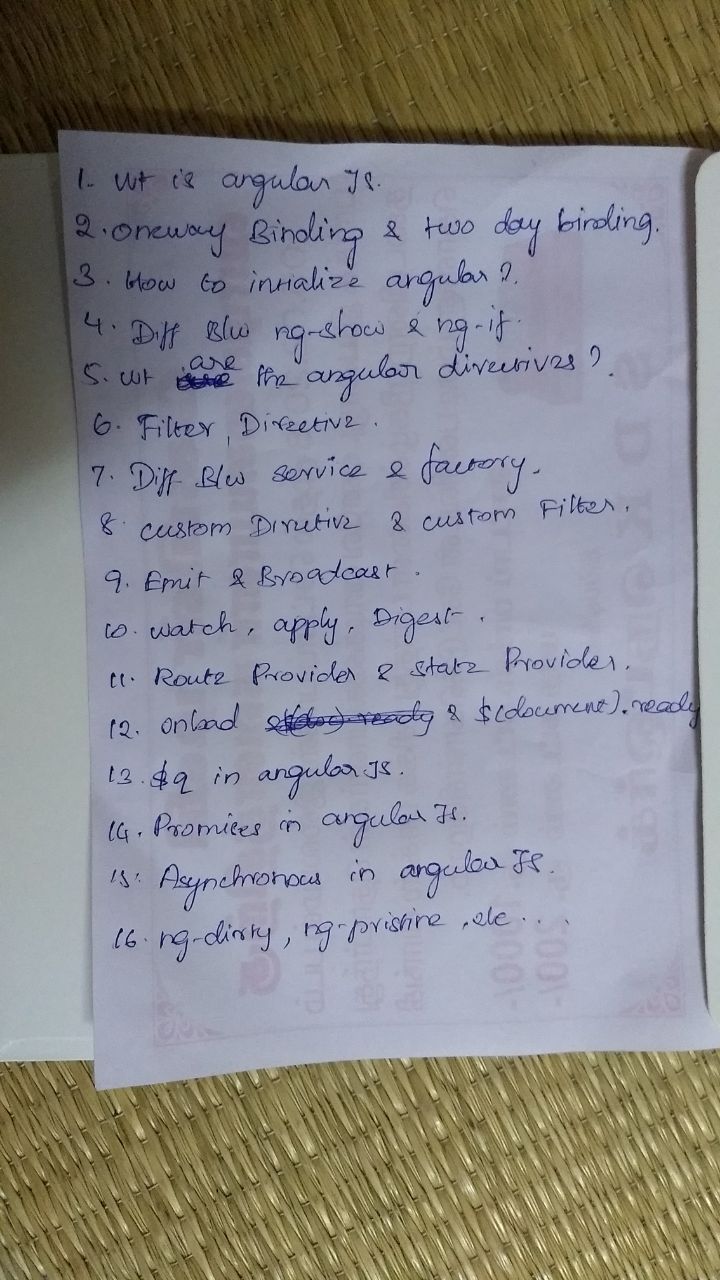 1. Wt is angular JS.
2. oneway Binding & two day binding.
3. How to intialize angular?
4. Diff Blw ng-show & ng-if.
5. wt are the angular directives?
6. Filter, Directive.
7. Diff Blw service & factory.
8. custom Directive & custom Filter.
9. Emit & Broadcast.
10. watch, apply, Digest.
11. Route Provider & State Provider.
12. onload & $(document).ready
13. $q in angular JS.
14. Promises in angular Js.
15. Asynchronous in angular JS.
16. ng-dirty, ng-pristine, etc....